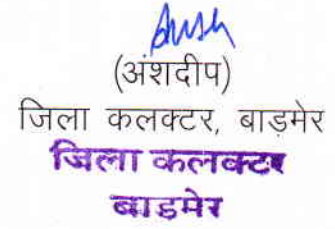 (अंशदीप)
जिला कलक्टर, बाड़मेर
जिला कलक्टर
बाडमेर